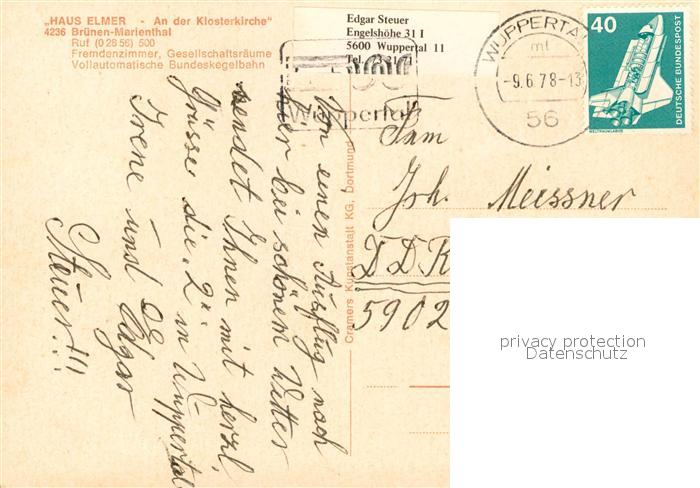 „HAUS ELMER - An der Klosterkirche"
4236 Brünen-Marienthal
Ruf (0 28 56) 500
Fremdenzimmer, Gesellschaftsräume
Vollautomatische Bundeskegelbahn
Edgar Steuer
Engelshöhe 31 I
5600 Wuppertal 11
Tel.
Wuppertal
WUPPERTAL
mt
-9.6.78-13
56
40
DEUTSCHE BUNDESPOST
WELTRAUMLABOR
Von einen Ausflug nach
hier bei schönem Wetter
sendet Ihnen mit herzl.
Grüsse die 2 in Wuppertal
Irene und Edgar
Steuer!!!
Cramers Kunstanstalt KG, Dortmund
Fam
Joh. Meissner
DDR
5902
privacy protection
Datenschutz